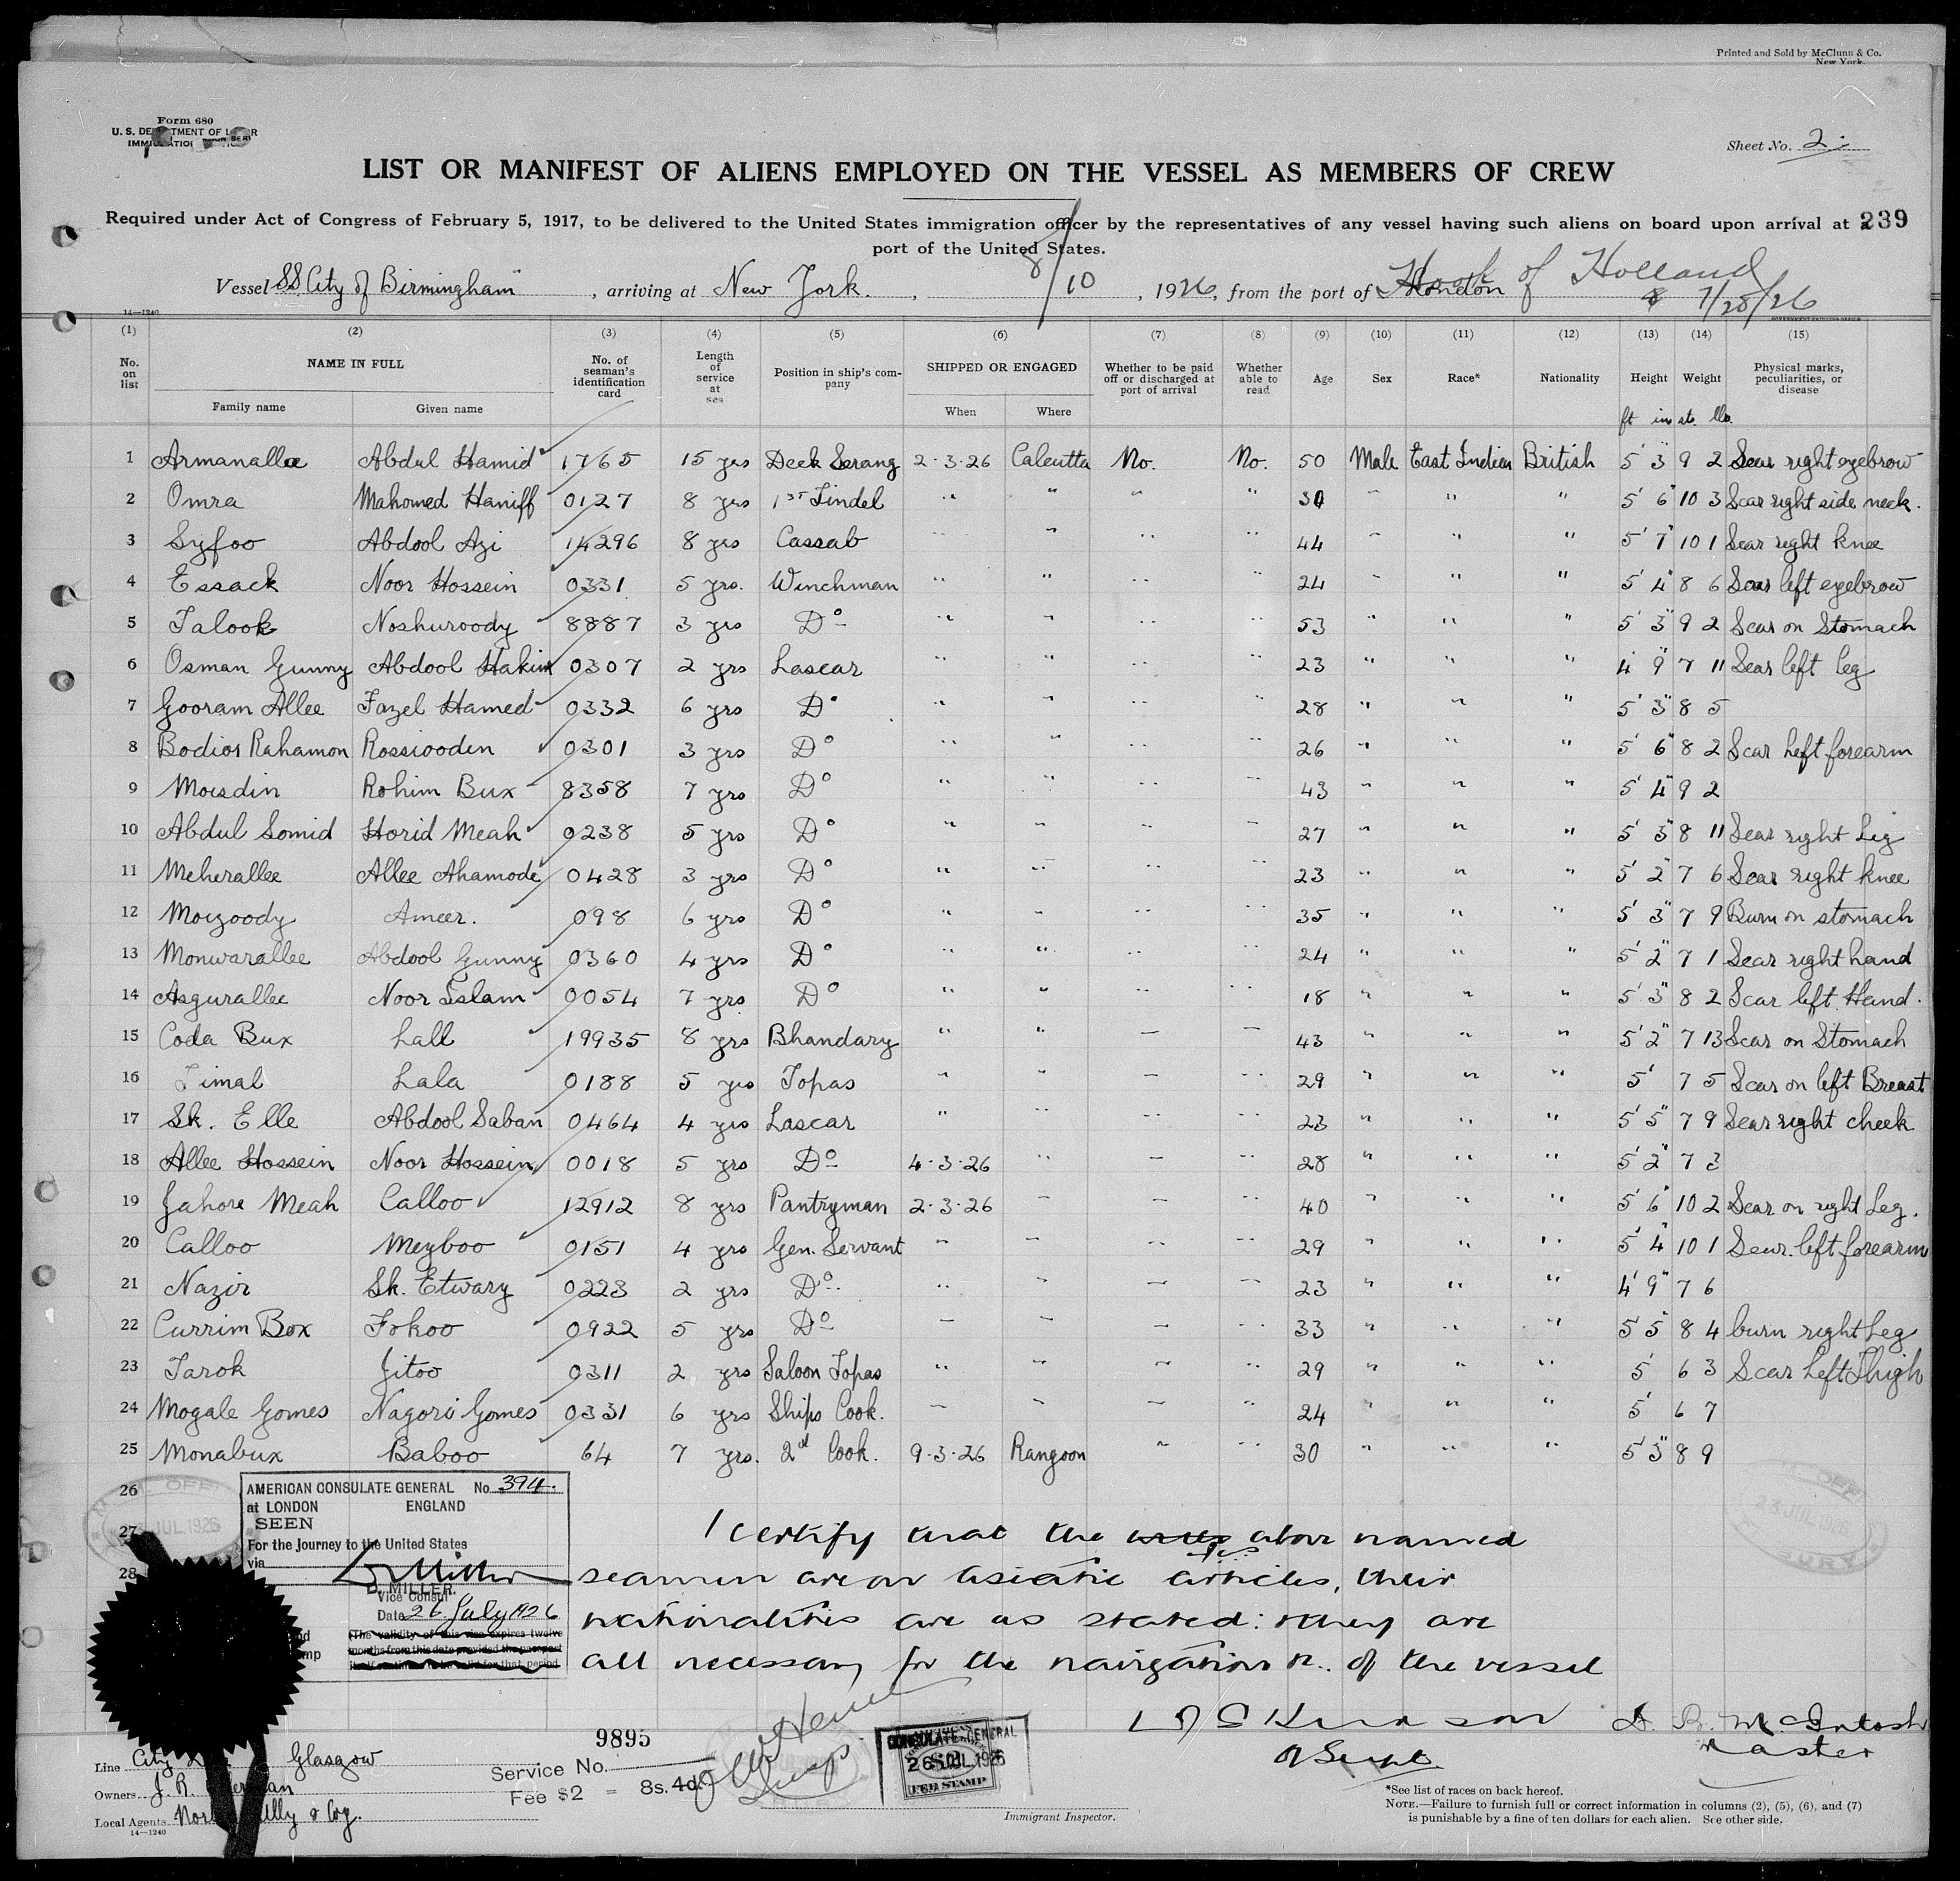 Printed and Sold by McClunn & Co.
New York.
Form 680
U. S. DEPARTMENT OF LABOR
IMMIGRATION SERVICE
Sheet No. 2
LIST OR MANIFEST OF ALIENS EMPLOYED ON THE VESSEL AS MEMBERS OF CREW
Required under Act of Congress of February 5, 1917, to be delivered to the United States immigration officer by the representatives of any vessel having such aliens on board upon arrival at a 239
port of the United States.
Vessel SS "City of Birmingham", arriving at New York., 8/10, 1926, from the port of London Hook of Holland
7/28/26
14—1240
(1) (2) (3) (4) (5) (6) (7) (8) (9) (10) (11) (12) (13) (14) (15)
No. on list NAME IN FULL Family name Given name No. of seaman's identification card Length of service at sea Position in ship's company SHIPPED OR ENGAGED When Where Whether to be paid off or discharged at port of arrival Whether able to read Age Sex Race* Nationality Height Weight Physical marks, peculiarities, or disease
ft ins st. lbs.
1 Armanallee Abdul Hamid 1765 15 yrs Deck Serang 2-3-26 Calcutta No. No. 50 Male East Indian British 5' 3" 9 2 Scar right eyebrow
2 Omra Mahomed Haniff 0127 8 yrs 1st Tindel " " " " 30 " " " 5' 6" 10 3 Scar right side neck.
3 Syfoo Abdool Azi 14296 8 yrs Cassab " " " " 44 " " " 5' 7" 10 1 Scar right knee
4 Essack Noor Hossein 0331 5 yrs. Winchman " " " " 24 " " " 5' 4" 8 6 Scar left eyebrow
5 Talook Noshuroody 8887 3 yrs Do " " " " 53 " " " 5' 3" 9 2 Scar on Stomach
6 Osman Gunny Abdool Hakim 0307 2 yrs Lascar " " " " 23 " " " 4' 9" 7 11 Scar left leg
7 Gooram Allee Fazel Hamed 0332 6 yrs Do " " " " 28 " " " 5' 3" 8 5
8 Bodior Rahamon Rossiooden 0301 3 yrs Do " " " " 26 " " " 5' 6" 8 2 Scar Left forearm
9 Moisdin Rohim Bux 8358 7 yrs Do " " " " 43 " " " 5' 4" 9 2
10 Abdul Somid Horid Meah 0238 5 yrs Do " " " " 27 " " " 5' 5" 8 11 Scar right Leg
11 Meherallee Allee Ahamode 0428 3 yrs Do " " " " 23 " " " 5' 2" 7 6 Scar right knee
12 Moizoody Ameer. 098 6 yrs Do " " " " 35 " " " 5' 3" 7 9 Burn on stomach
13 Monwarallee Abdool Gunny 0360 4 yrs Do " " " " 24 " " " 5' 2" 7 1 Scar right hand
14 Asgurallee Noor Islam 0054 7 yrs Do " " " " 18 " " " 5' 3" 8 2 Scar left Hand.
15 Coda Bux Lall 19935 8 yrs Bhandary " " " " 43 " " " 5' 2" 7 13 Scar on Stomach
16 Timal Lala 0188 5 yrs Topas " " " " 29 " " " 5' 7 5 Scar on left Breast
17 Sk. Elle Abdool Saban 0464 4 yrs Lascar " " " " 23 " " " 5' 5" 7 9 Scar right cheek
18 Allee Hossein Noor Hossein 0018 5 yrs Do 4-3-26 " " " 28 " " " 5' 2" 7 3
19 Jahore Meah Calloo 12912 8 yrs Pantryman 2-3-26 " " " 40 " " " 5' 6" 10 2 Scar on right Leg.
20 Calloo Meyboo 0151 4 yrs Gen. Servant " " " " 29 " " " 5' 4" 10 1 Scar. left forearm
21 Nazir Sk. Etwary 0223 2 yrs Do " " " " 23 " " " 4' 9" 7 6
22 Currim Box Fokoo 0922 5 yrs Do " " " " 33 " " " 5' 5" 8 4 burn right Leg
23 Tarok Jitoo 0311 2 yrs Saloon Topas " " " " 29 " " " 5' 6 3 Scar Left Thigh
24 Mogale Gomes Nagori Gomes 0331 6 yrs Ships Cook. " " " " 24 " " " 5' 6 7
25 Monabux Baboo 64 7 yrs. 2d Cook. 9-3-26 Rangoon " " 30 " " " 5' 5" 8 9
26
27
28
AMERICAN CONSULATE GENERAL No. 394.
at LONDON ENGLAND
SEEN
For the Journey to the United States
via
D. MILLER.
Vice Consul
Date 26 July 1926
(The validity of this visa expires twelve
months from this date provided the passport
itself continues to be valid for that period
JUL 1926
23 JUL 1926
I certify that the above named
seamen are on Asiatic articles, their
nationalities are as stated: they are
all necessary for the navigation of the vessel
D. R. McIntosh
Master
9895
Service No.
Fee $2 = 8s. 4d.
CONSULATE GENERAL
26 JUL 1926
FEE STAMP
Immigrant Inspector.
Line City Glasgow
Owners J. R.
Local Agents & Coy.
14—1240
*See list of races on back hereof.
NOTE.—Failure to furnish full or correct information in columns (2), (5), (6), and (7)
is punishable by a fine of ten dollars for each alien. See other side.